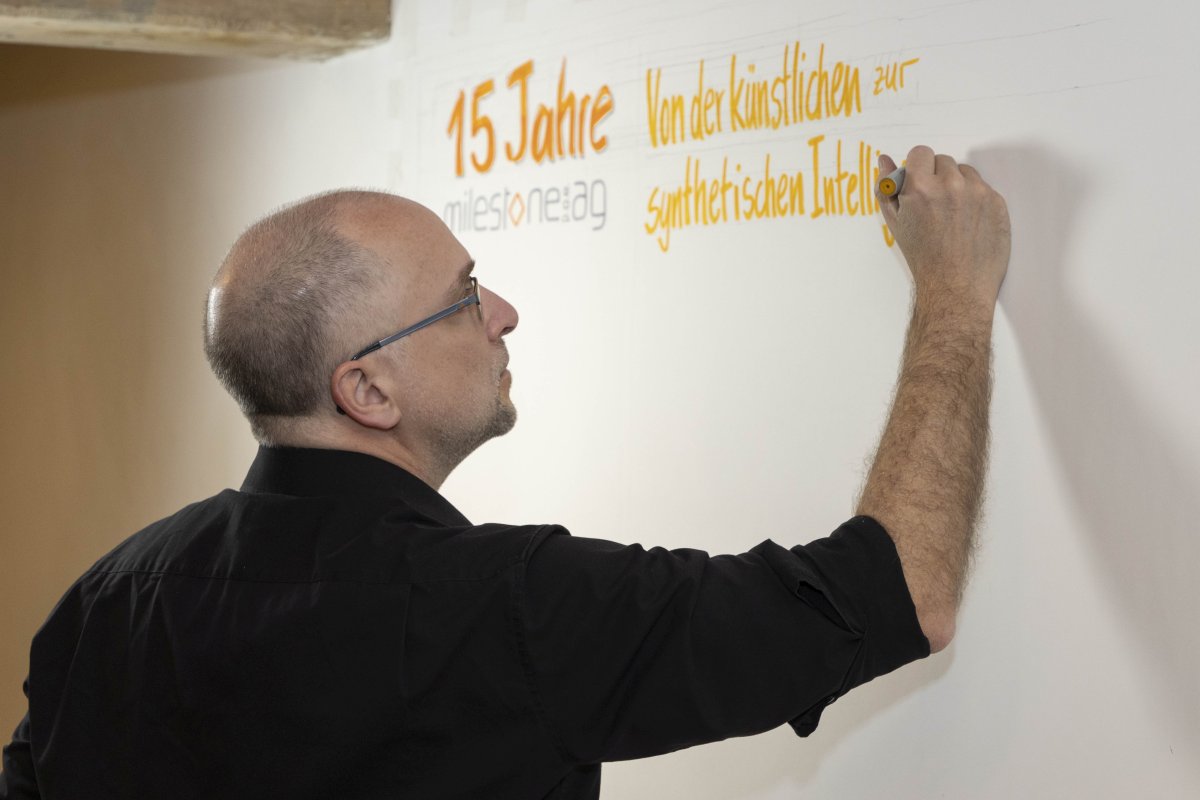 15 Jahre
milestone ag
Von der künstlichen zur
synthetischen